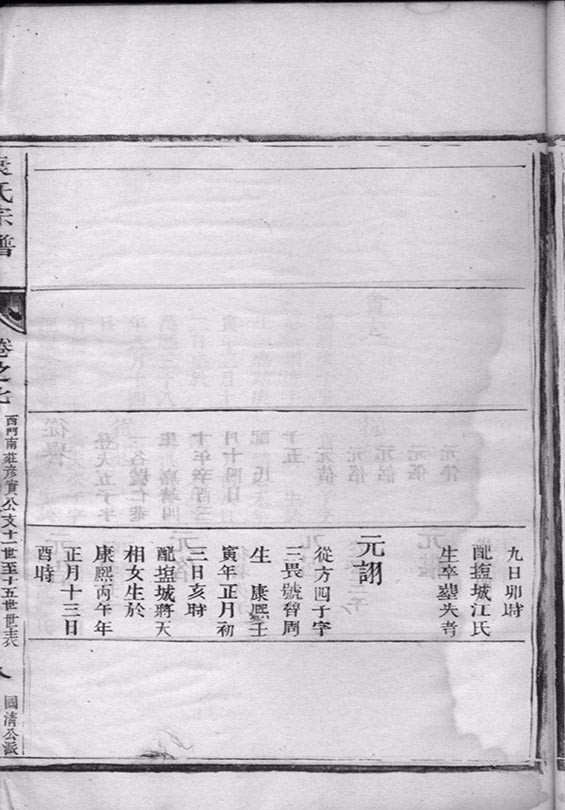 九日卯時
配塩城江氏
生卒塟失考
元詡
從方四子字
三畏號晉周
生 康熙壬
寅年正月初
三日亥時
配塩城蔣天
相女生於
康熙丙午年
正月十三日
酉時
袁氏宗譜
卷之七
西門南莊彦實公支十一世至十五世世表
國清公派